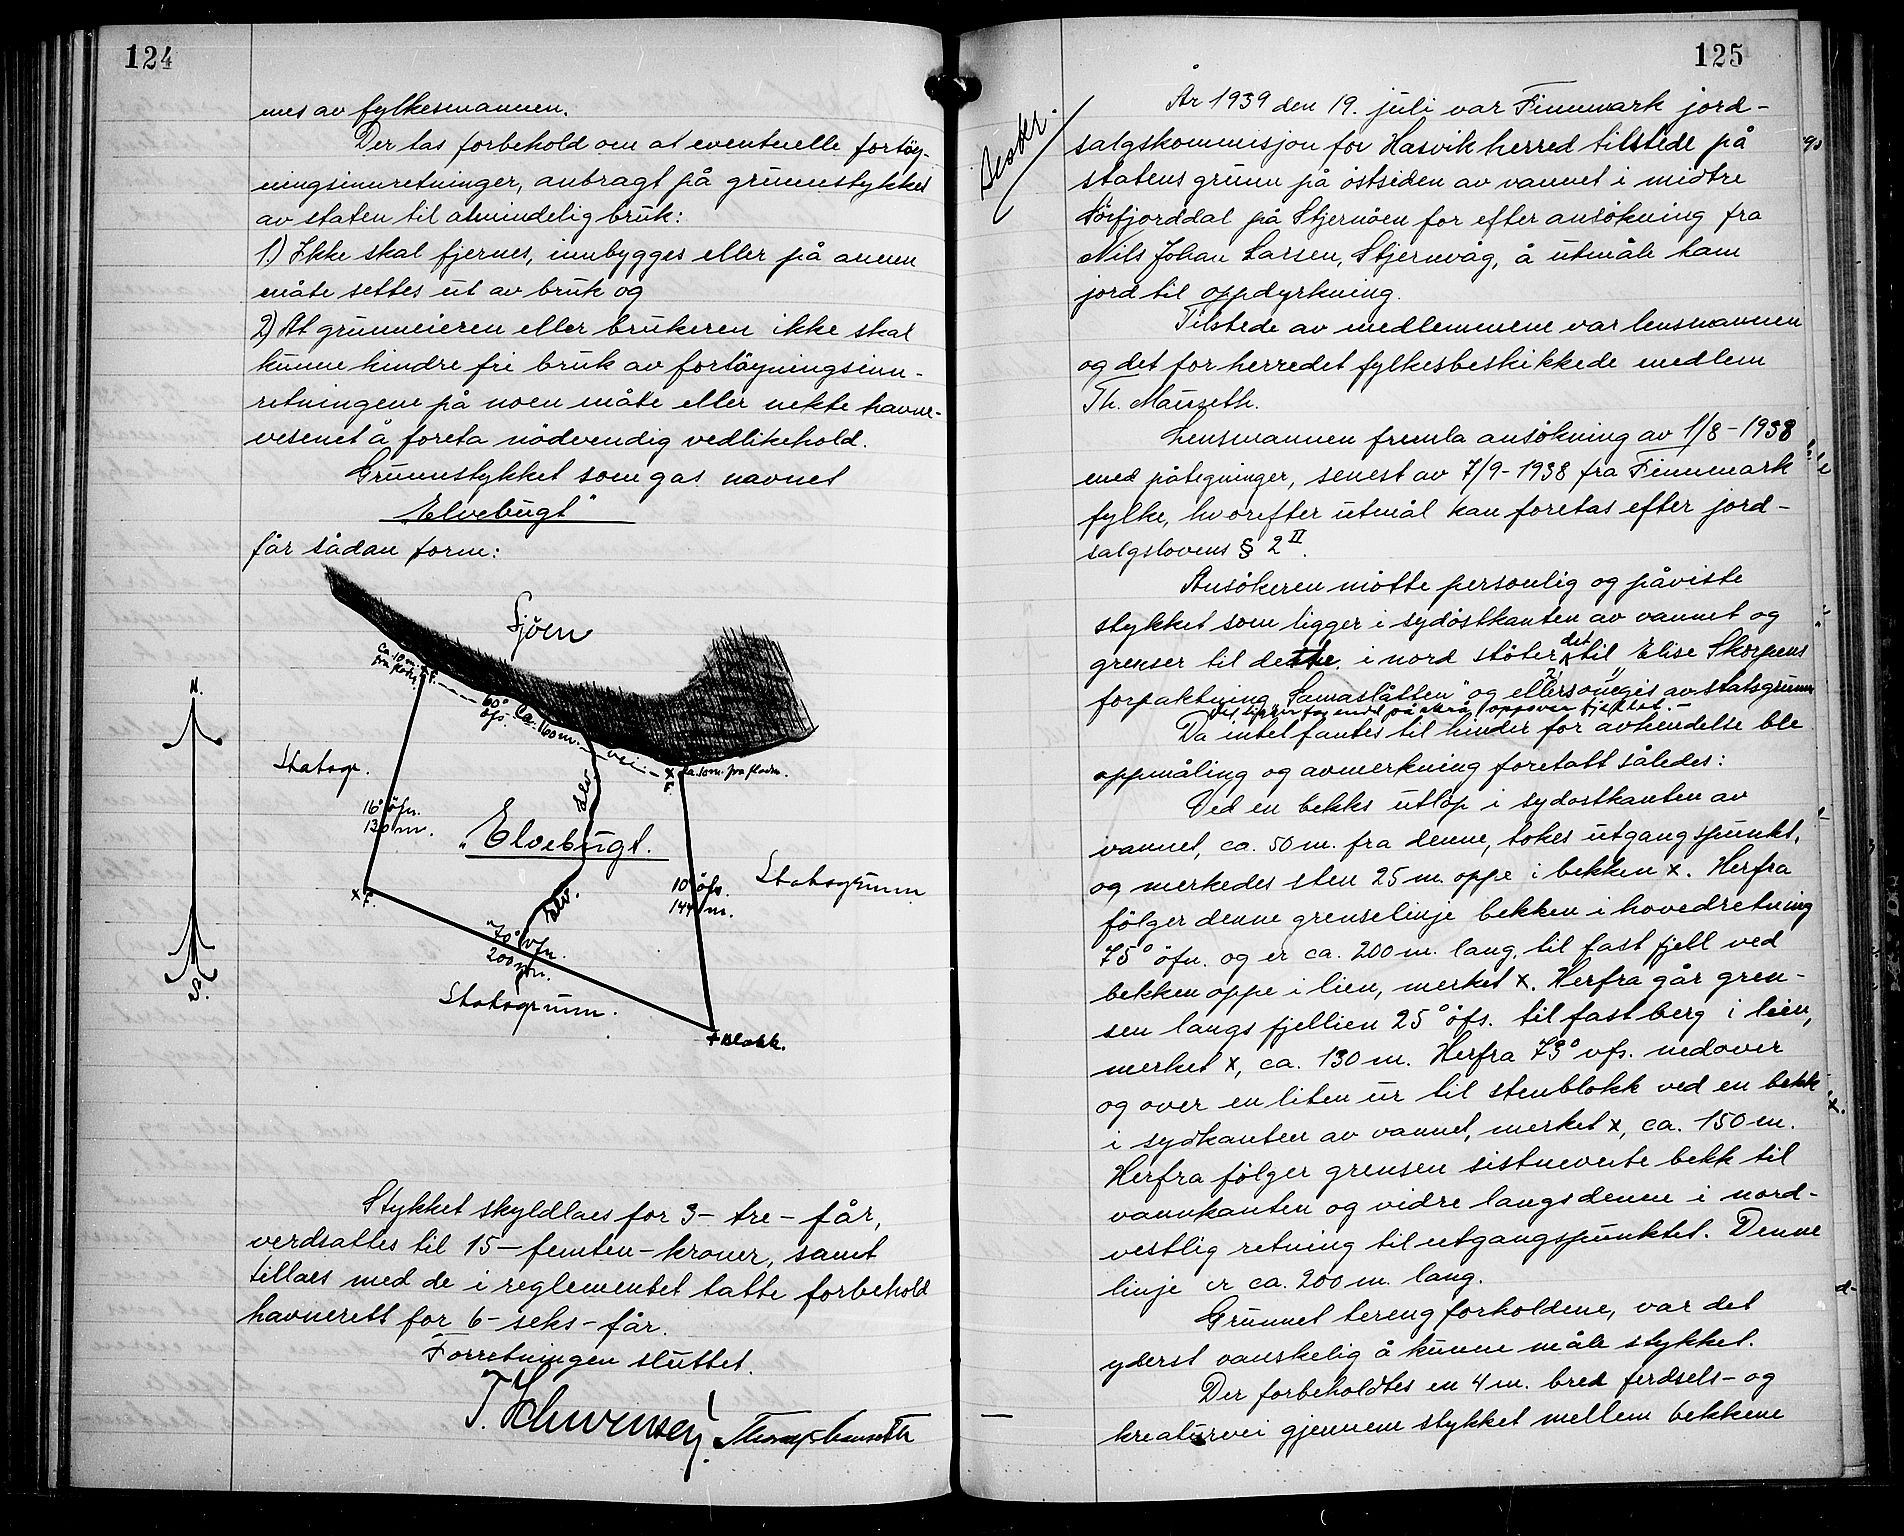 124
nes av fylkesmannen.
Der tas forbehold om at eventuelle fortöy-
ningsinnretninger, anbragt på grunnstykket
av staten til almindelig bruk:
1.) Ikke skal fjernes, innbygges eller på annen
måte settes ut av bruk og
2) At grunneieren eller brukeren ikke skal
kunne hindre fri bruk av fortöyningsinn-
retningene på noen måte eller nekte havne-
vesenet å foreta nödvendig vedlikehold.
Grunnstykket som gas navnet
"Elvebugt"
får sådan form:
Sjöen
Ca. 10 m.
fra flodm.
F.
60°
öfs.
Ca. 160 m.
vei
x
F.
ca. 10 m. fra flodm.
N.
Statsgr.
Elv
16° öfn.
130 m.
"Elvebugt.
Statsgrunn
10° öfs.
144 m.
x F.
Elv.
70° vfn.
200 m.
Statsgrunn.
S.
+ Blokk.
Stykket skyldlaes for 3- tre - får,
verdsattes til 15 - femten - kroner, samt
tillaes med de i reglementet tatte forbehold
havnerett for 6- seks - får.
Forretningen sluttet.
125
År 1939 den 19. juli var Finnmark jord-
salgskommisjon for Hasvik herred tilstede på
statens grunn på östsiden av vannet i midtre
Sörfjorddal på Stjernöen for efter ansökning fra
Nils Johan Larsen, Stjernvåg, å utmåle ham
jord til oppdyrkning.
Tilstede av medlemmene var lensmannen
og det for herredet fylkesbeskikkede medlem
Th. Mauseth.
Lensmannen fremla ansökning av 1/8 - 1938
med påtegninger, senest av 7/9 - 1938 fra Finnmark
fylke, hvorefter utmål kan foretas efter jord-
salgslovens § 2 II.
Ansökeren mötte personlig og påviste
stykket som ligger i sydöstkanten av vannet og
grenser til dette, i nord stöter det til Elise Skorpens
forpaktning "Samaslåtten" og ellers omgis av statsgrunn
Det ligger for endel på skrå oppover fjellet. -
Da intet fantes til hinder for avhendelse ble
oppmåling og avmerkning foretatt således:
Ved en bekks utlöp i sydöstkanten av
vannet, ca. 50 m. fra denne, tokes utgangspunkt,
og merkedes sten 25 m. oppe i bekken x. Herfra
fölger denne grenselinje bekken i hovedretning
75° öfn. og er ca. 200 m. lang, til fast fjell ved
bekken oppe i lien, merket x. Herfra går gren-
sen langs fjellien 25° öfs. til fast berg i lien,
merket x, ca. 130 m. Herfra 73° vfs. nedover
og over en liten ur til stenblokk ved en bekk
i sydkanten av vannet, merket x, ca. 150 m.
Herfra fölger grensen sistnevnte bekk til
vannkanten og vidre langs denne i nord-
vestlig retning til utgangspunktet. Denne
linje er ca. 200 m. lang.
Grunnet terengforholdene, var det
yderst vanskelig å kunne måle stykket.
Der forbeholdtes en 4 m. bred ferdsels- og
kreaturvei gjennem stykket mellem bekkene